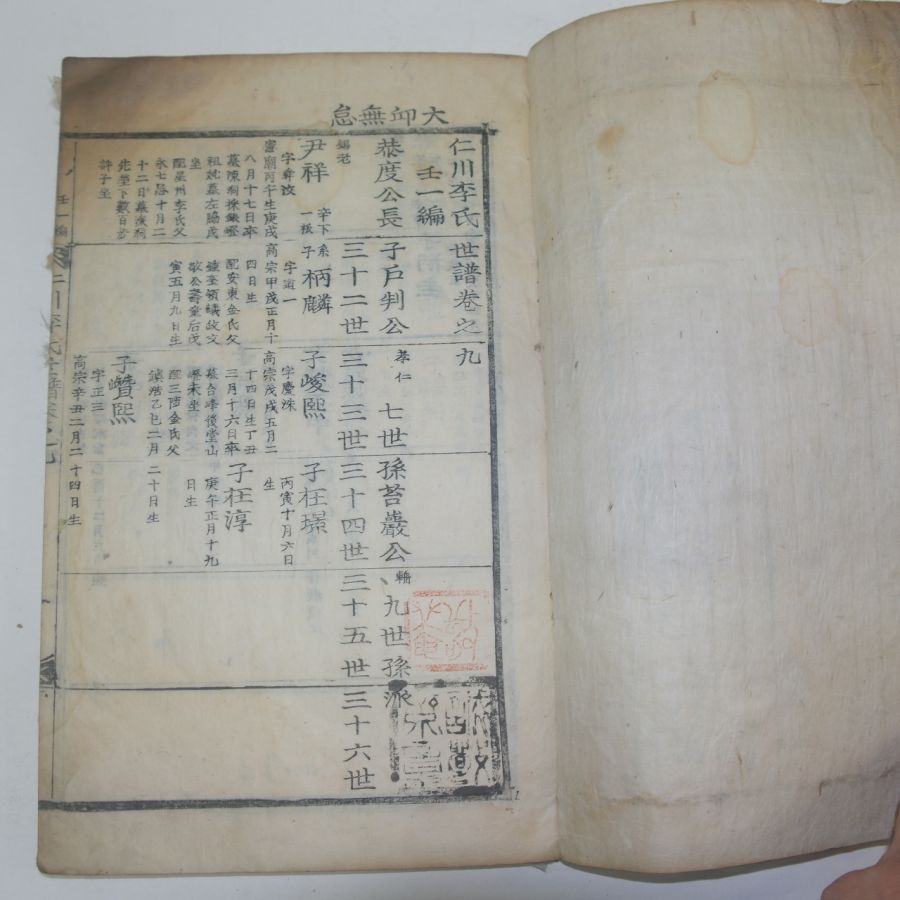 大卬無怠
仁川李氏世譜卷之九
壬一編
恭度公長子戶判公孝仁七世孫苔巖公 九世孫派
三十二世
三十三世
三十四世
三十五世
三十六世
尹祥
字舜汝
憲廟丙午生庚戌
八月十七日卒
墓陳洞採鐵嶝
祖妣墓左腸戌
坐
配星州李氏父
永七忌十月二
十二日墓陳洞
先塋下數百步
許子坐
系子柄麟
字道一
高宗甲戌正月十
四日生
配安東金氏父
鍾奎領議政文
敬公壽童后戊
寅五月九日生
子峻熙
字慶洙
高宗戊戌五月二
十四日生丁丑
三月十六日卒
墓台峰後堂山
嶝未坐
配三陟金氏父
鎭浩乙巳二月
二十日生
子枉璟
丙寅十月六日
生
子枉淳
庚午正月十九
日生
子巑熙
字正三
高宗辛丑二月二十四日生
壬一編
仁川李氏世譜卷之九